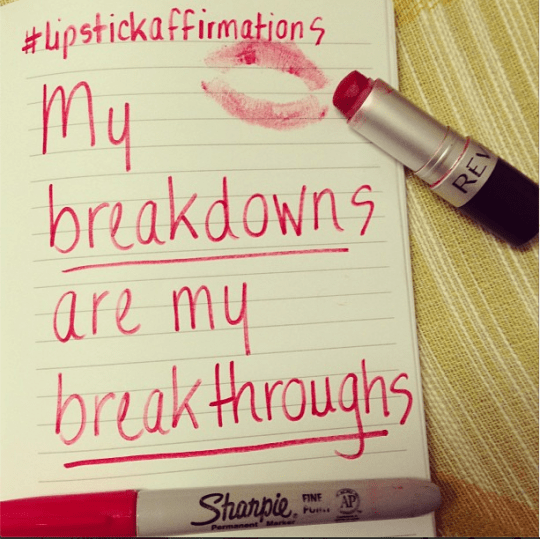 #lipstickaffirmations
My
breakdowns
are my
breakthroughs
REV
Sharpie.
FINE
POINT
AP
Permanent Marker